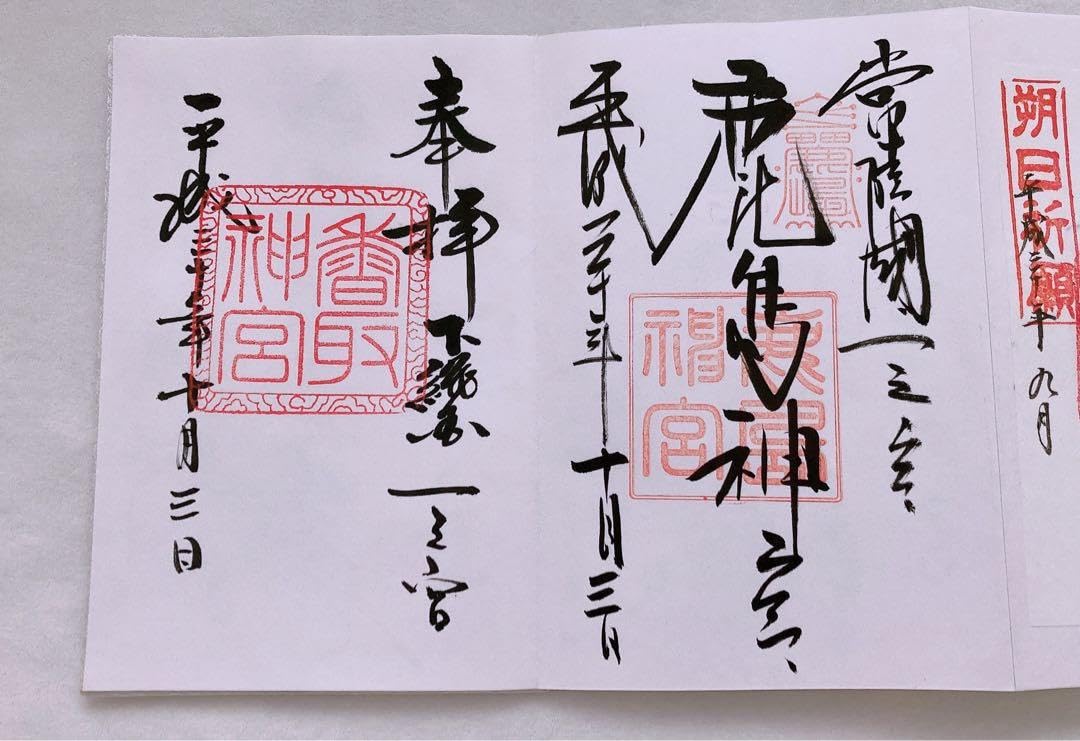 朔日祈願
平成三十年九月
常陸國一之宮
鹿島神宮
鹿島神宮
平成三十年十月三日
奉拝 下總一之宮
香取神宮
平成三十年十月三日